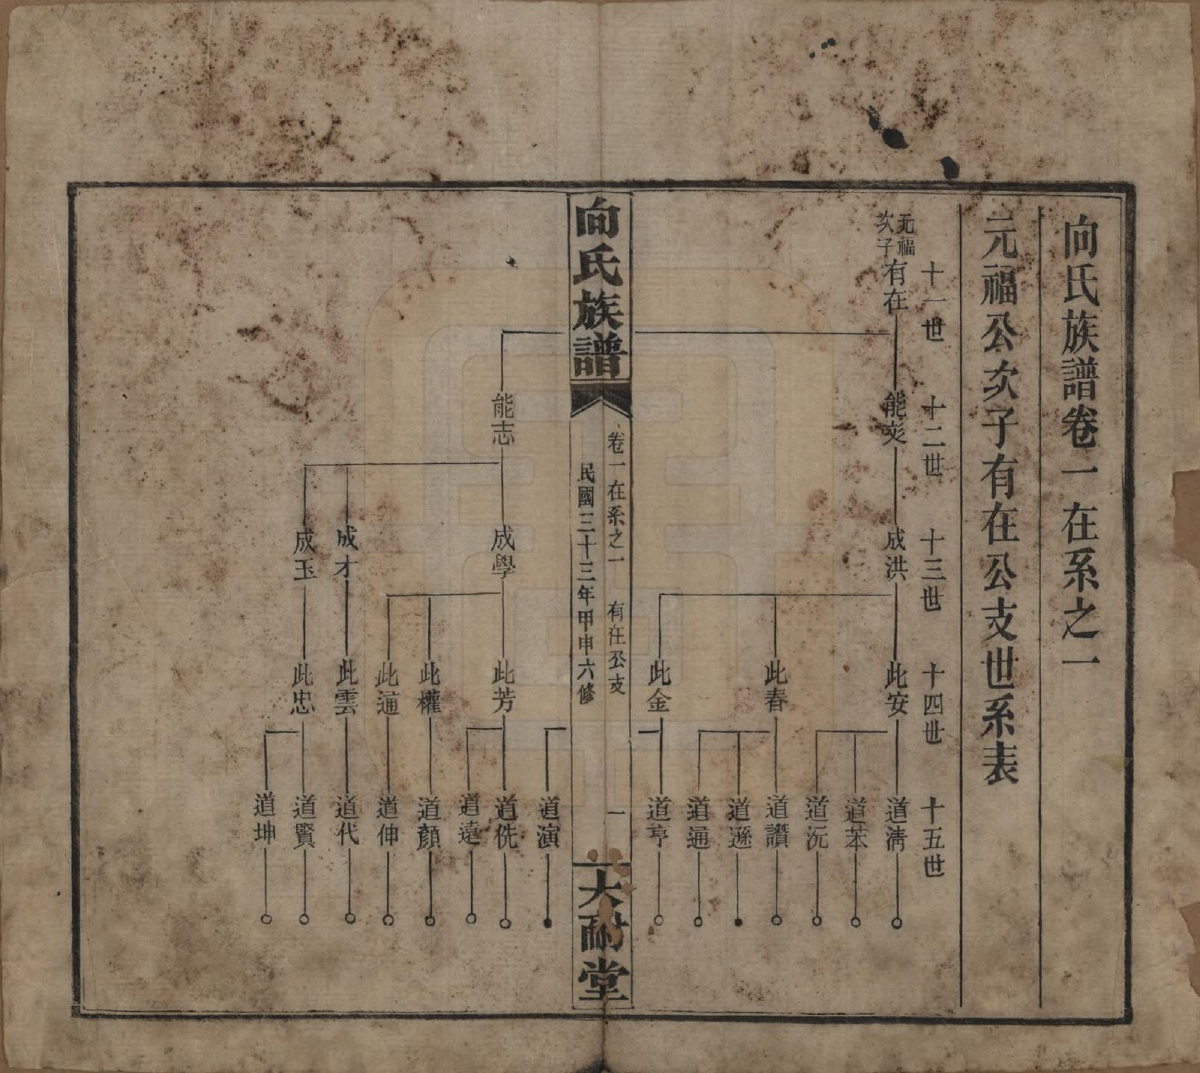 向氏族譜卷一 在系之一
元福公次子有在公支世系表
十一世 十二世 十三世 十四世 十五世
元福次子有在
能
成洪
此安
道淸
道苯
道沅
此春
道讚
道遜
道通
此金
道亨
向氏族譜
卷一在系之一 有在公支 一
民國三十三年甲申六修
大耐堂
道演
能志
成學
此芳
道侁
道遠
此權
道顏
此通
道伸
成才
此雲
道代
成玉
此忠
道賢
道坤